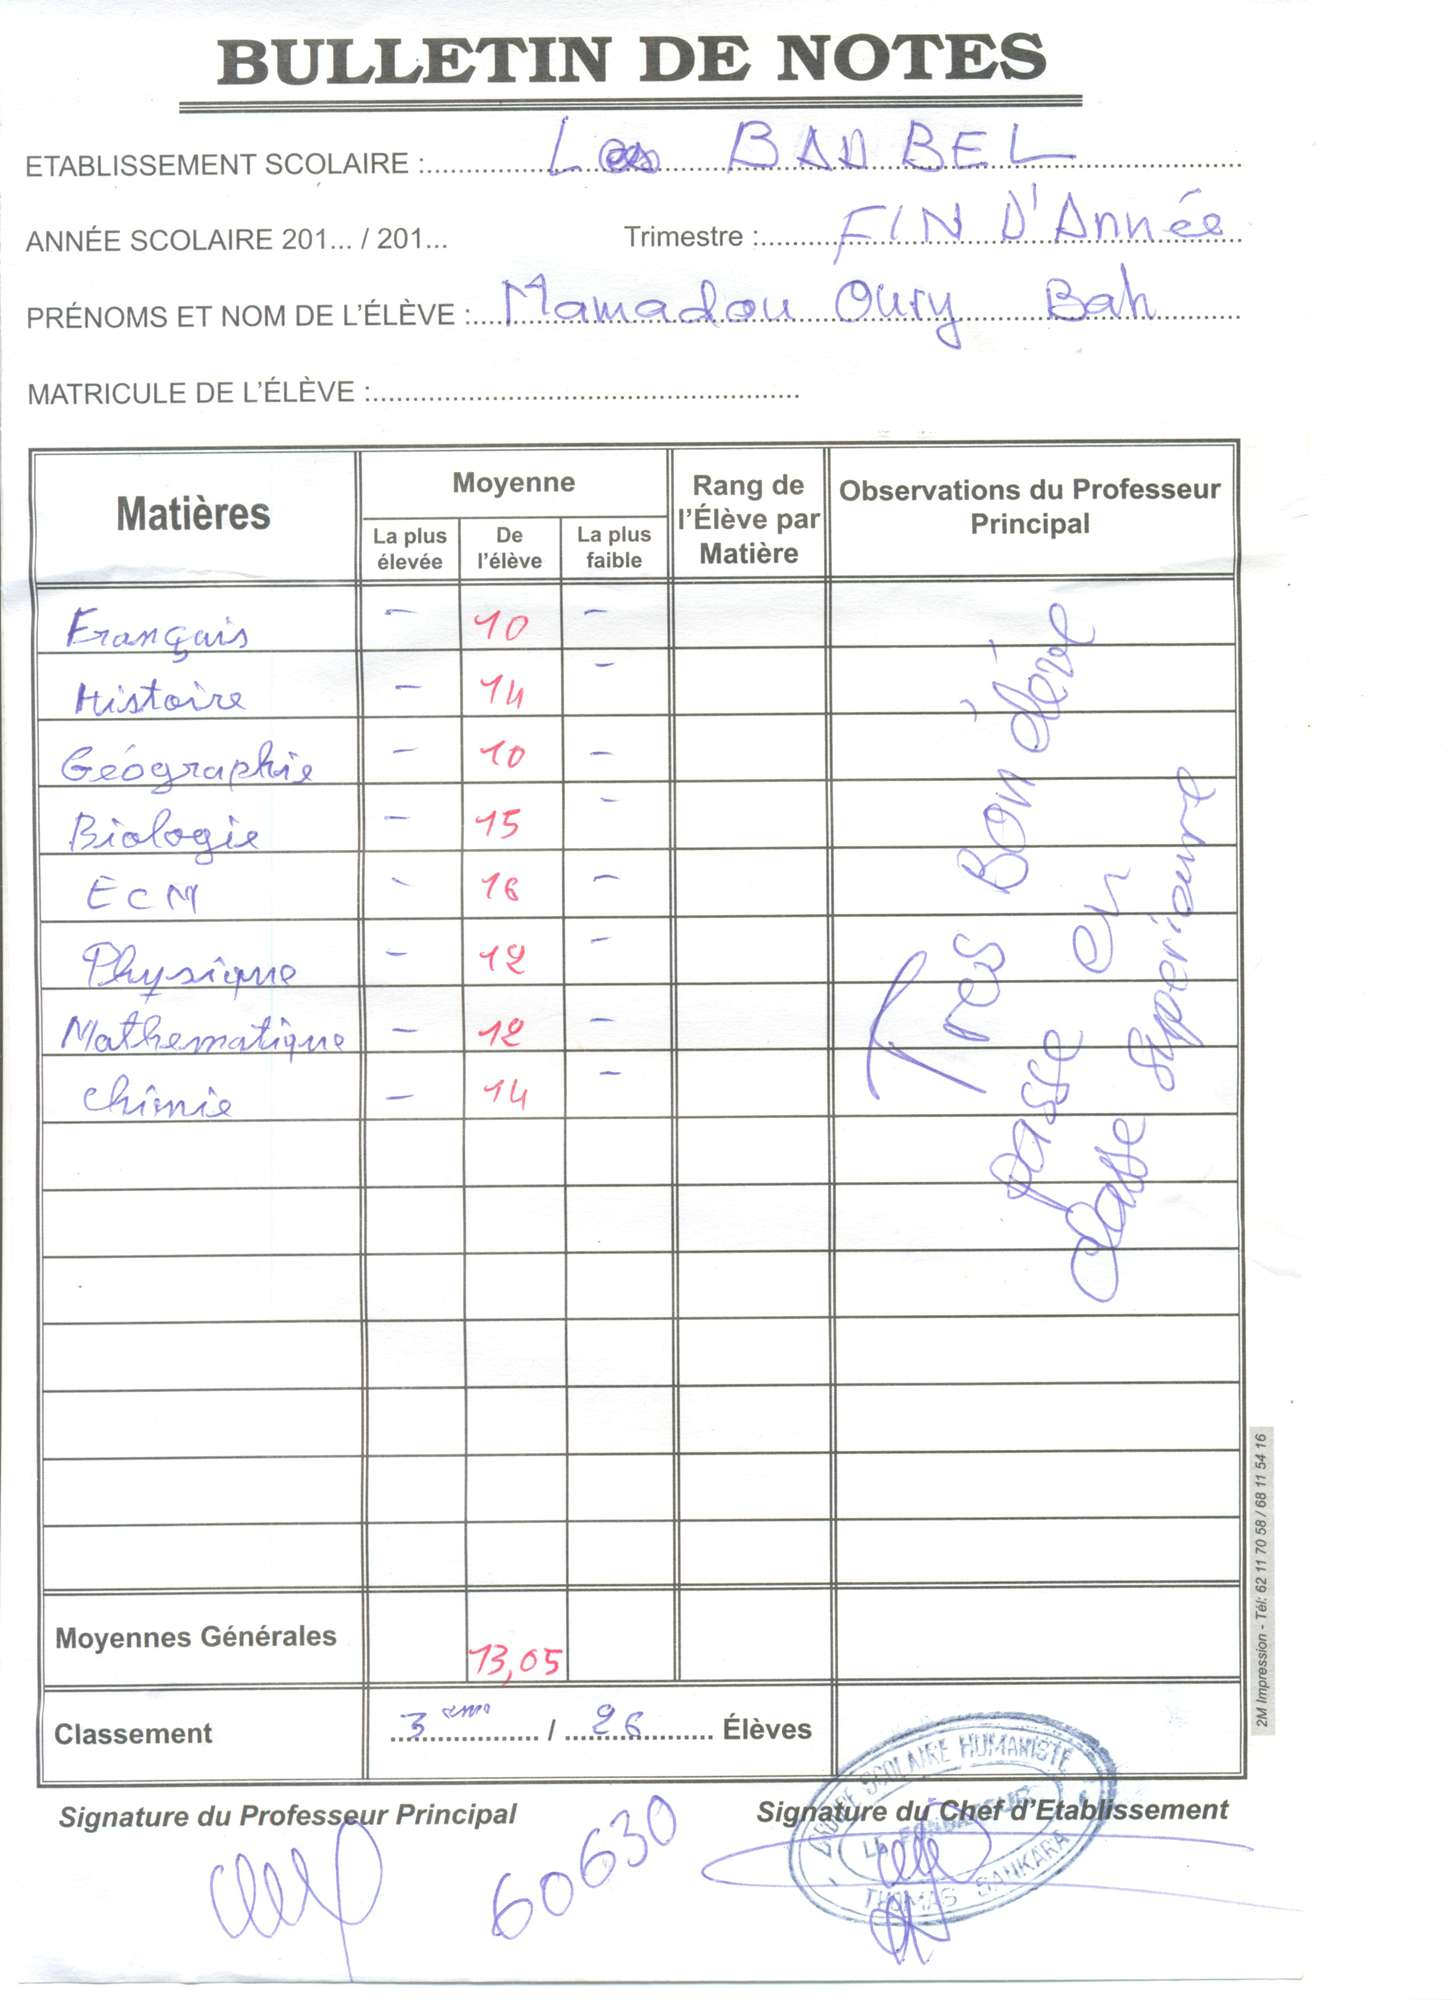 BULLETIN DE NOTES
ETABLISSEMENT SCOLAIRE : BAABEL
ANNÉE SCOLAIRE 201... / 201... Trimestre : FIN D'Année
PRÉNOMS ET NOM DE L'ÉLÈVE : Mamadou Oury Bah
MATRICULE DE L'ÉLÈVE :
Matières Moyenne Rang de l'Élève par Matière Observations du Professeur Principal
La plus élevée De l'élève La plus faible
Français - 10 -
Histoire - 14 -
Géographie - 10 -
Biologie - 15 -
ECM - 16 -
Physique - 12 -
Mathematique - 12 -
chimie - 14 -
Tres Bon élève
passe en
classe superieure
Moyennes Générales 13,05
Classement 3 eme / 26 Élèves
Signature du Professeur Principal Signature du Chef d'Etablissement
60630
SCOLAIRE HUMANISTE
THOMAS SANKARA
2M Impression - Tél: 62 11 70 58 / 68 11 54 16